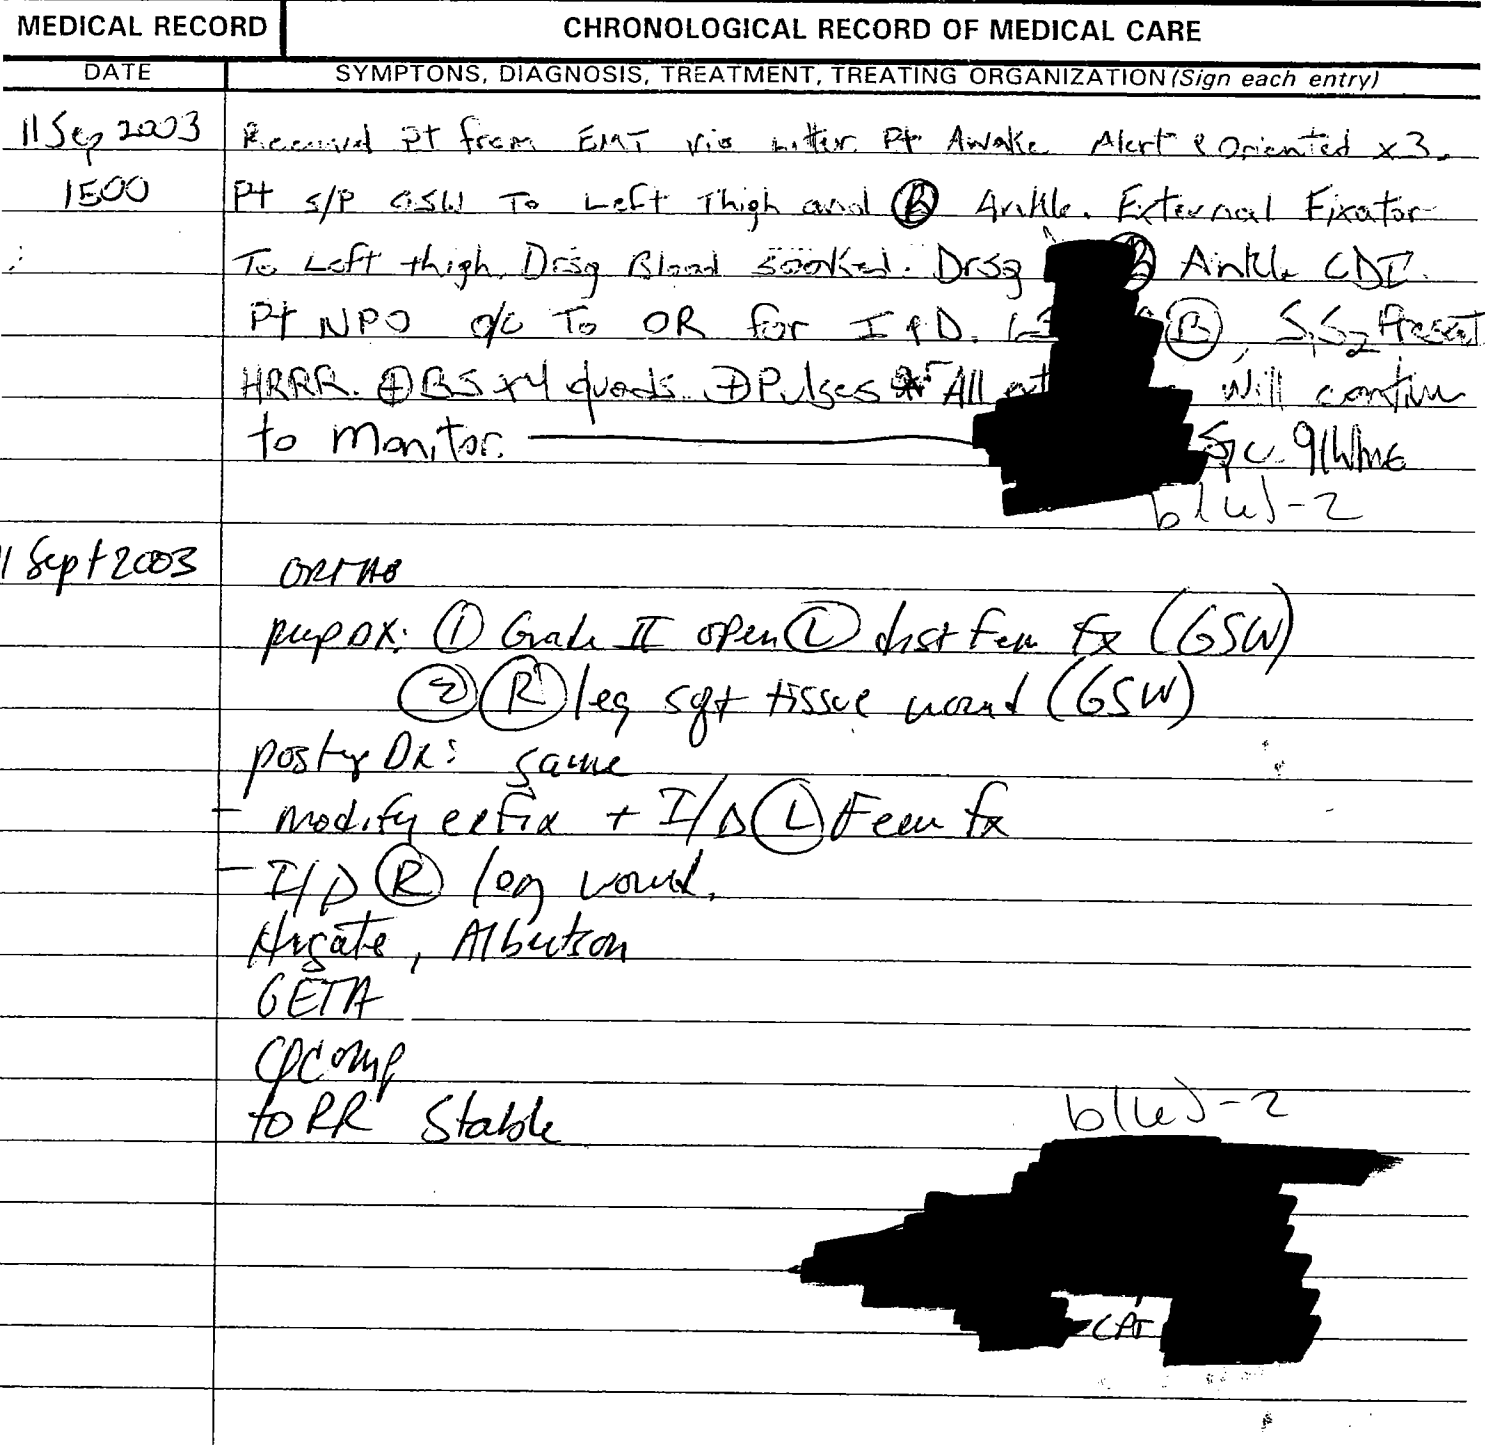 MEDICAL RECORD
CHRONOLOGICAL RECORD OF MEDICAL CARE
DATE
SYMPTONS, DIAGNOSIS, TREATMENT, TREATING ORGANIZATION (Sign each entry)
11 Sep 2003 Received Pt from EMT via Litter. Pt Awake Alert & Oriented x3.
1500 Pt s/p GSW To Left Thigh and Ⓡ Ankle. External Fixator
To Left thigh. Drsg Blood Soaked. Drsg Ⓡ Ankle CDI.
Pt NPO To OR for I&D. Ⓑ, S1S2 Present
HRRR. ⊕BS x4 quads. ⊕Pulses All ext Will continue
to Monitor. Spc 91WM6
b(6)-2
11 Sept 2003 ORTHO
preop DX: ① Grade II open Ⓛ dist Fem fx (GSW)
② Ⓡ leg soft tissue wound (GSW)
postop DX: same
- modify exfix + I/D Ⓛ Fem fx
- I/D Ⓡ leg wound.
Albertson
GETA
comp
to RR Stable
b(6)-2
CPT